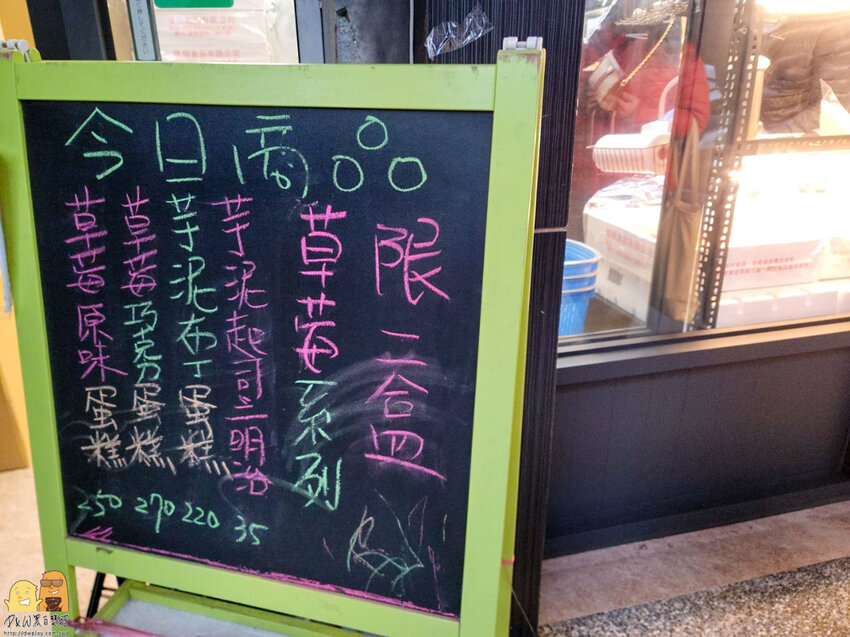 今日商品
限二盒
草莓系列
芋泥起司三明治 35
芋泥布丁蛋糕 220
草莓巧克力蛋糕 270
草莓原味蛋糕 250
http://dwplay.com.tw/